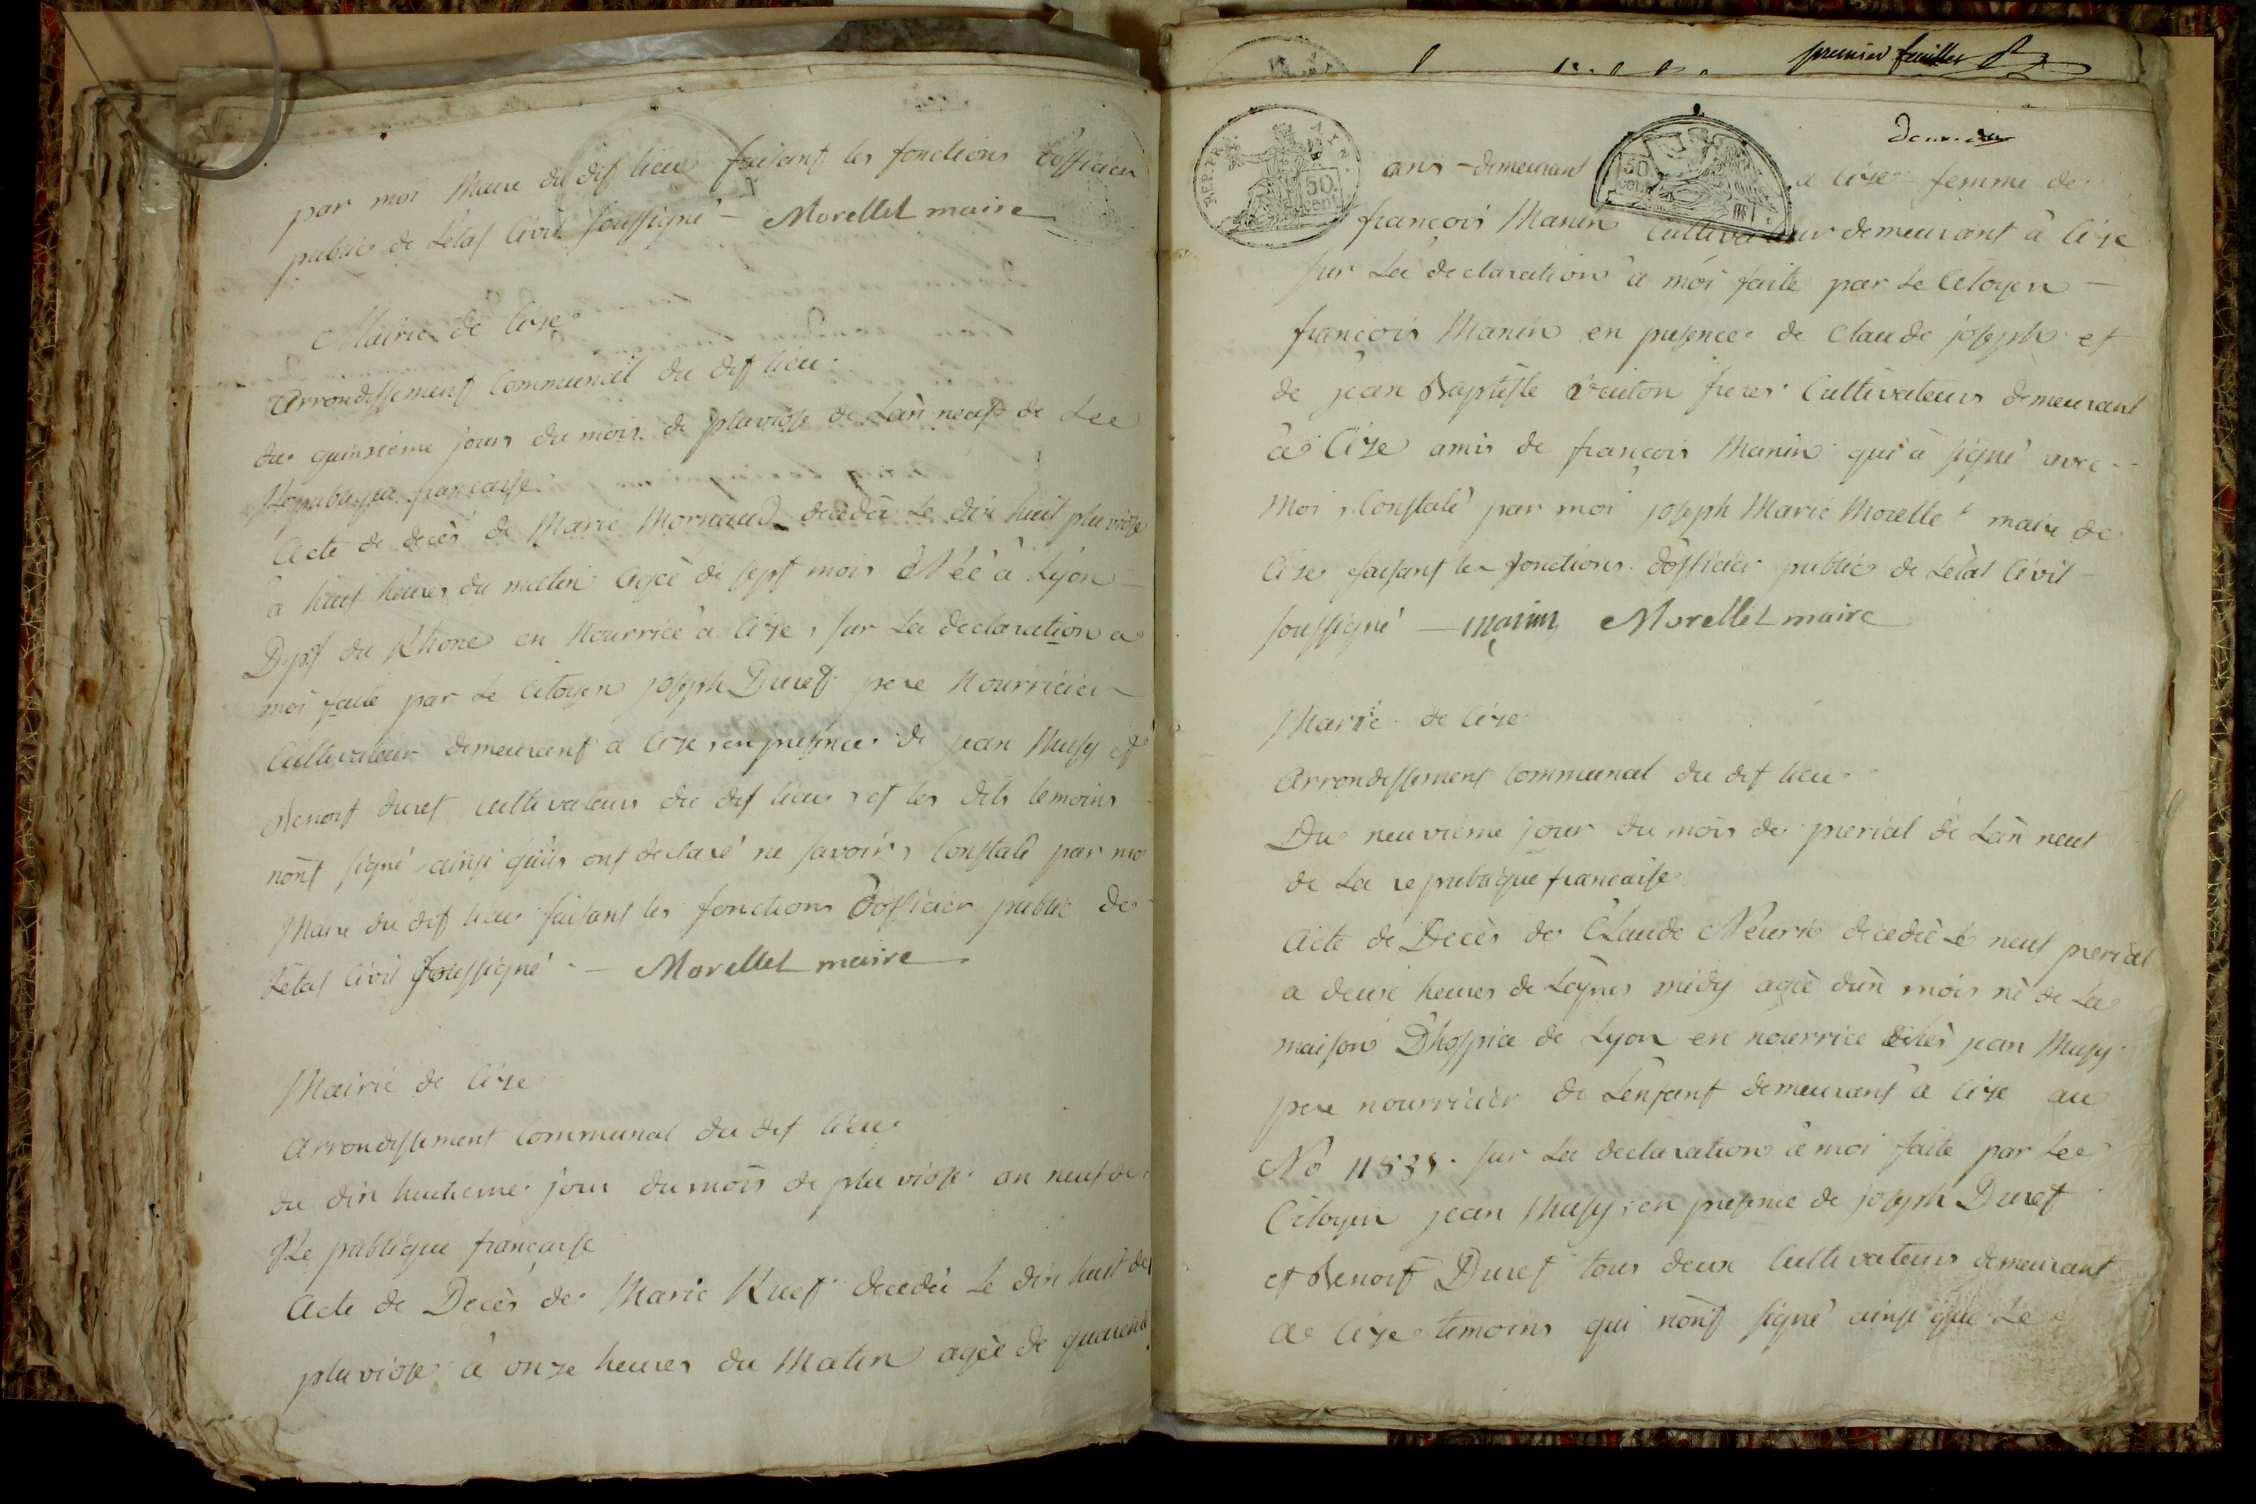 par moi Maire du dit lieu faisant les fonctions dofficier
public de Létat Civil soussigné - Morellet maire
Mairie de Cize
Arrondissement Communal du dit lieu
du quinsieme jours du mois de pluviose de Lan neuf de La
Republique francaise
Acte de décès de Marie Mornaud décédéé Le dix huit pluviose
à huit heures du matin Ageé de sept mois Née à Lyon
Dept du Rhone en Nourrice à Cize, sur La declaration a
moi faite par Le Citoyen joseph Duret pere Nourricier
Cultivateur demeurant a Cize, en presence de jean Musy et
Benoit duret cultivateurs du dit lieu, et les dits temoins
nont signé ainsi quils ont declaré ne savoir, Constaté par moi
Maire du dit lieu faisant les fonctions dofficier public de
Létat Civil soussigné - Morellet maire
Mairie de Cize
Arrondissement Communal du dit lieu
du dix huitieme jour du mois de pluviose an neuf de
Re publique francaise
Acte de Decès de Marie Ruet decedéé Le dix huit de
pluviose à onze heures du Matin ageè de quarente
premier feuillet
REP. FRA.
50. cent.
50. cent
ans - demeurant a Cize femme de
françois Manin Cultivateur demeurant à Cize
sur La declaration a moi faite par Le Citoyen -
françois Manin en presence de Claude joseph et
de jean Baptiste Vuiton freres Cultivateurs demeurant
a Cize amis de françois Manin qui à signé avec
Moi, Constaté par moi joseph Marie Morellet maire de
Cize faisant les fonctions dofficier public de Létat Civil -
soussigné - manin Morellet maire
Marie de Cize
Arrondissement Communal du dit lieu
Du neuvieme jour du mois de prerial de Lan neuf
de La re publique francaise
Acte de Decès de Claude Neurie decedéé Le neuf prerial
a deux heures de Lapres midy ageè dun mois né de La
maison Dhospice de Lyon en nourrice chés jean Musy
pere nourricier de Lenfant demeurant a Cize au
No 11838. sur La declaration à moi faite par Le
Citoyen jean Musy, en presence de joseph Duret
et Benoit Duret tous deux Cultivateurs demeurant
a Cize temoins qui nont signé ainsi que Le